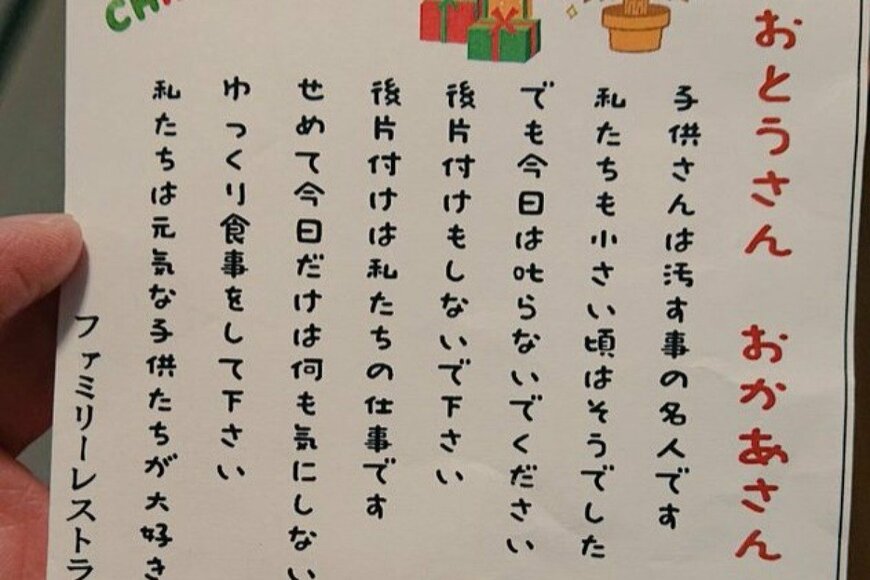 おとうさん おかあさん
子供さんは汚す事の名人です
私たちも小さい頃はそうでした
でも今日は叱らないでください
後片付けもしないで下さい
後片付けは私たちの仕事です
せめて今日だけは何も気にしない
ゆっくり食事をして下さい
私たちは元気な子供たちが大好き
ファミリーレストラ